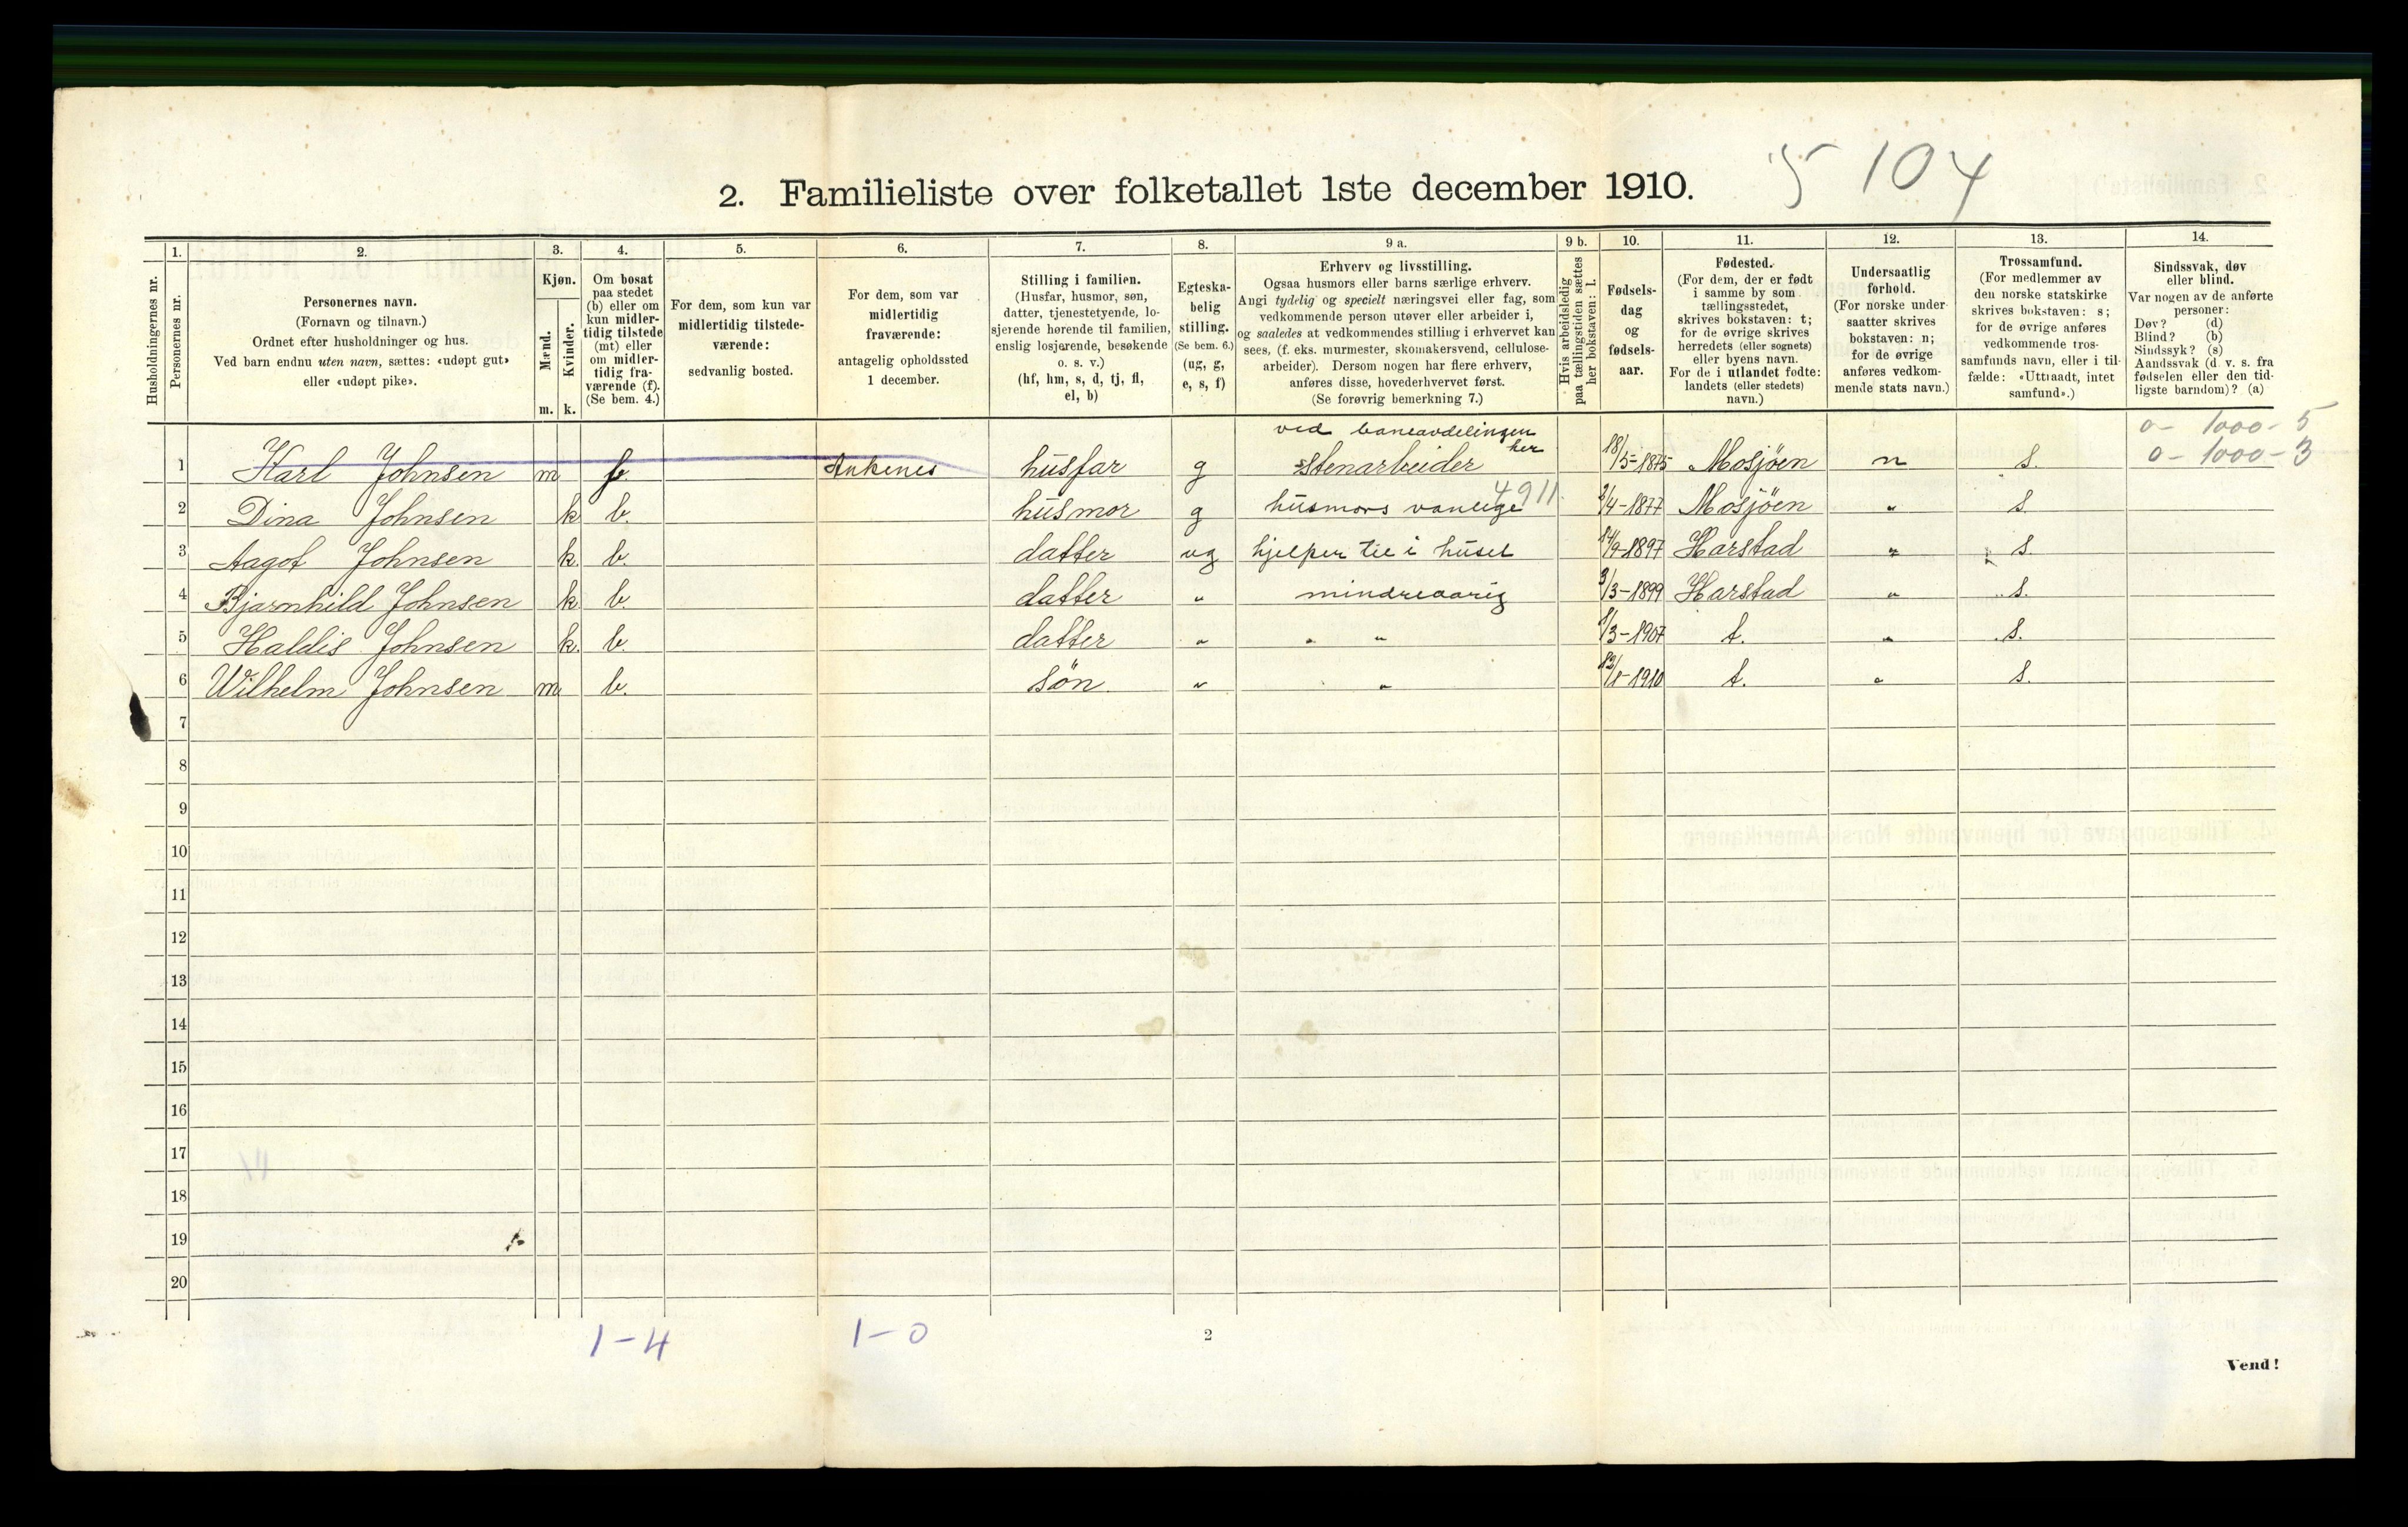 5 104
2. Familieliste over folketallet 1ste december 1910.
Husholdningernes nr.
1. Personernes nr.
2. Personernes navn.
(Fornavn og tilnavn.)
Ordnet efter husholdninger og hus.
Ved barn endnu uten navn, sættes: «udøpt gut»
eller «udøpt pike».
3. Kjøn.
Mænd. m.
Kvinder. k.
4. Om bosat
paa stedet
(b) eller om
kun midler-
tidig tilstede
(mt) eller
om midler-
tidig fra-
værende (f).
(Se bem. 4.)
5. For dem, som kun var
midlertidig tilstede-
værende:
sedvanlig bosted.
6. For dem, som var
midlertidig
fraværende:
antagelig opholdssted
1 december.
7. Stilling i familien.
(Husfar, husmor, søn,
datter, tjenestetyende, lo-
sjerende hørende til familien,
enslig losjerende, besøkende
o. s. v.)
(hf, hm, s, d, tj, fl,
el, b)
8. Egteska-
belig
stilling.
(Se bem. 6.)
(ug, g,
e, s, f)
9 a. Erhverv og livsstilling.
Ogsaa husmors eller barns særlige erhverv.
Angi tydelig og specielt næringsvei eller fag, som
vedkommende person utøver eller arbeider i,
og saaledes at vedkommendes stilling i erhvervet kan
sees, (f. eks. murmester, skomakersvend, cellulose-
arbeider). Dersom nogen har flere erhverv,
anføres disse, hovederhvervet først.
(Se forøvrig bemerkning 7.)
9 b. Hvis arbeidsledig
paa tællingstiden sættes
her bokstaven: l.
10. Fødsels-
dag
og
fødsels-
aar.
11. Fødested.
(For dem, der er født
i samme by som
tællingsstedet,
skrives bokstaven: t;
for de øvrige skrives
herredets (eller sognets)
eller byens navn.
For de i utlandet fødte:
landets (eller stedets)
navn.)
12. Undersaatlig
forhold.
(For norske under-
saatter skrives
bokstaven: n;
for de øvrige
anføres vedkom-
mende stats navn.)
13. Trossamfund.
(For medlemmer av
den norske statskirke
skrives bokstaven: s;
for de øvrige anføres
vedkommende tros-
samfunds navn, eller i til-
fælde: «Uttraadt, intet
samfund».)
14. Sindssvak, døv
eller blind.
Var nogen av de anførte
personer:
Døv? (d)
Blind? (b)
Sindssyk? (s)
Aandssvak (d. v. s. fra
fødselen eller den tid-
ligste barndom)? (a)
ved baneavdelingen her 0- 1000- 5
1 Karl Johnsen m f. Ankenes husfar g Stenarbeider 18/5-1875 Mosjøen n s. 0- 1000- 3
4911.
2 Dina Johnsen k b. husmor g husmors vanlige 2/4-1877 Mosjøen " s
3 Aagot Johnsen k. b. datter ug hjelper til i huset 14/9-1897 Harstad " s.
4 Bjarnhild Johnsen k b. datter " mindreaarig 3/3-1899 Harstad " s.
5 Haldis Johnsen k. b. datter " " " 1/3-1907 t. " s.
6 Wilhelm Johnsen m b. søn " " 1910 t. " s.
7
8
9
10
11
12
13
14
15
16
17
18
19
20
1-4 1-0
2
Vend!